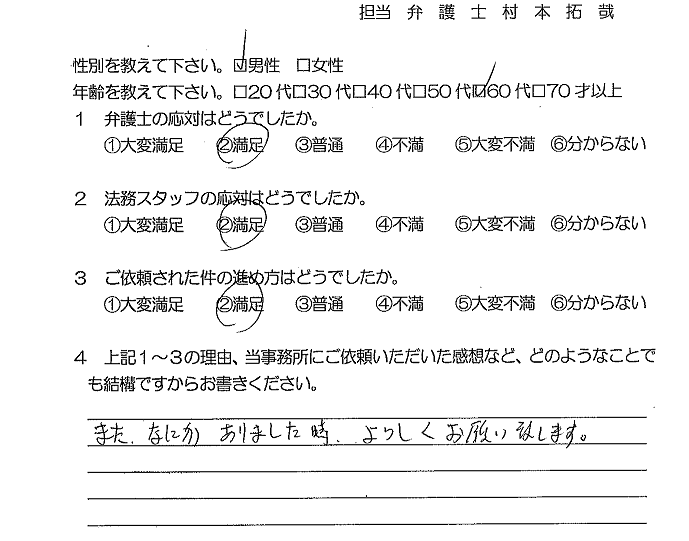 担当 弁 護 士 村 本 拓 哉
性別を教えて下さい。☑男性 □女性
年齢を教えて下さい。□20代□30代□40代□50代☑60代□70才以上
1 弁護士の応対はどうでしたか。
①大変満足 ②満足 ③普通 ④不満 ⑤大変不満 ⑥分からない
2 法務スタッフの応対はどうでしたか。
①大変満足 ②満足 ③普通 ④不満 ⑤大変不満 ⑥分からない
3 ご依頼された件の進め方はどうでしたか。
①大変満足 ②満足 ③普通 ④不満 ⑤大変不満 ⑥分からない
4 上記1～3の理由、当事務所にご依頼いただいた感想など、どのようなことで
も結構ですからお書きください。
また、なにか ありました時、よろしくお願い致します。